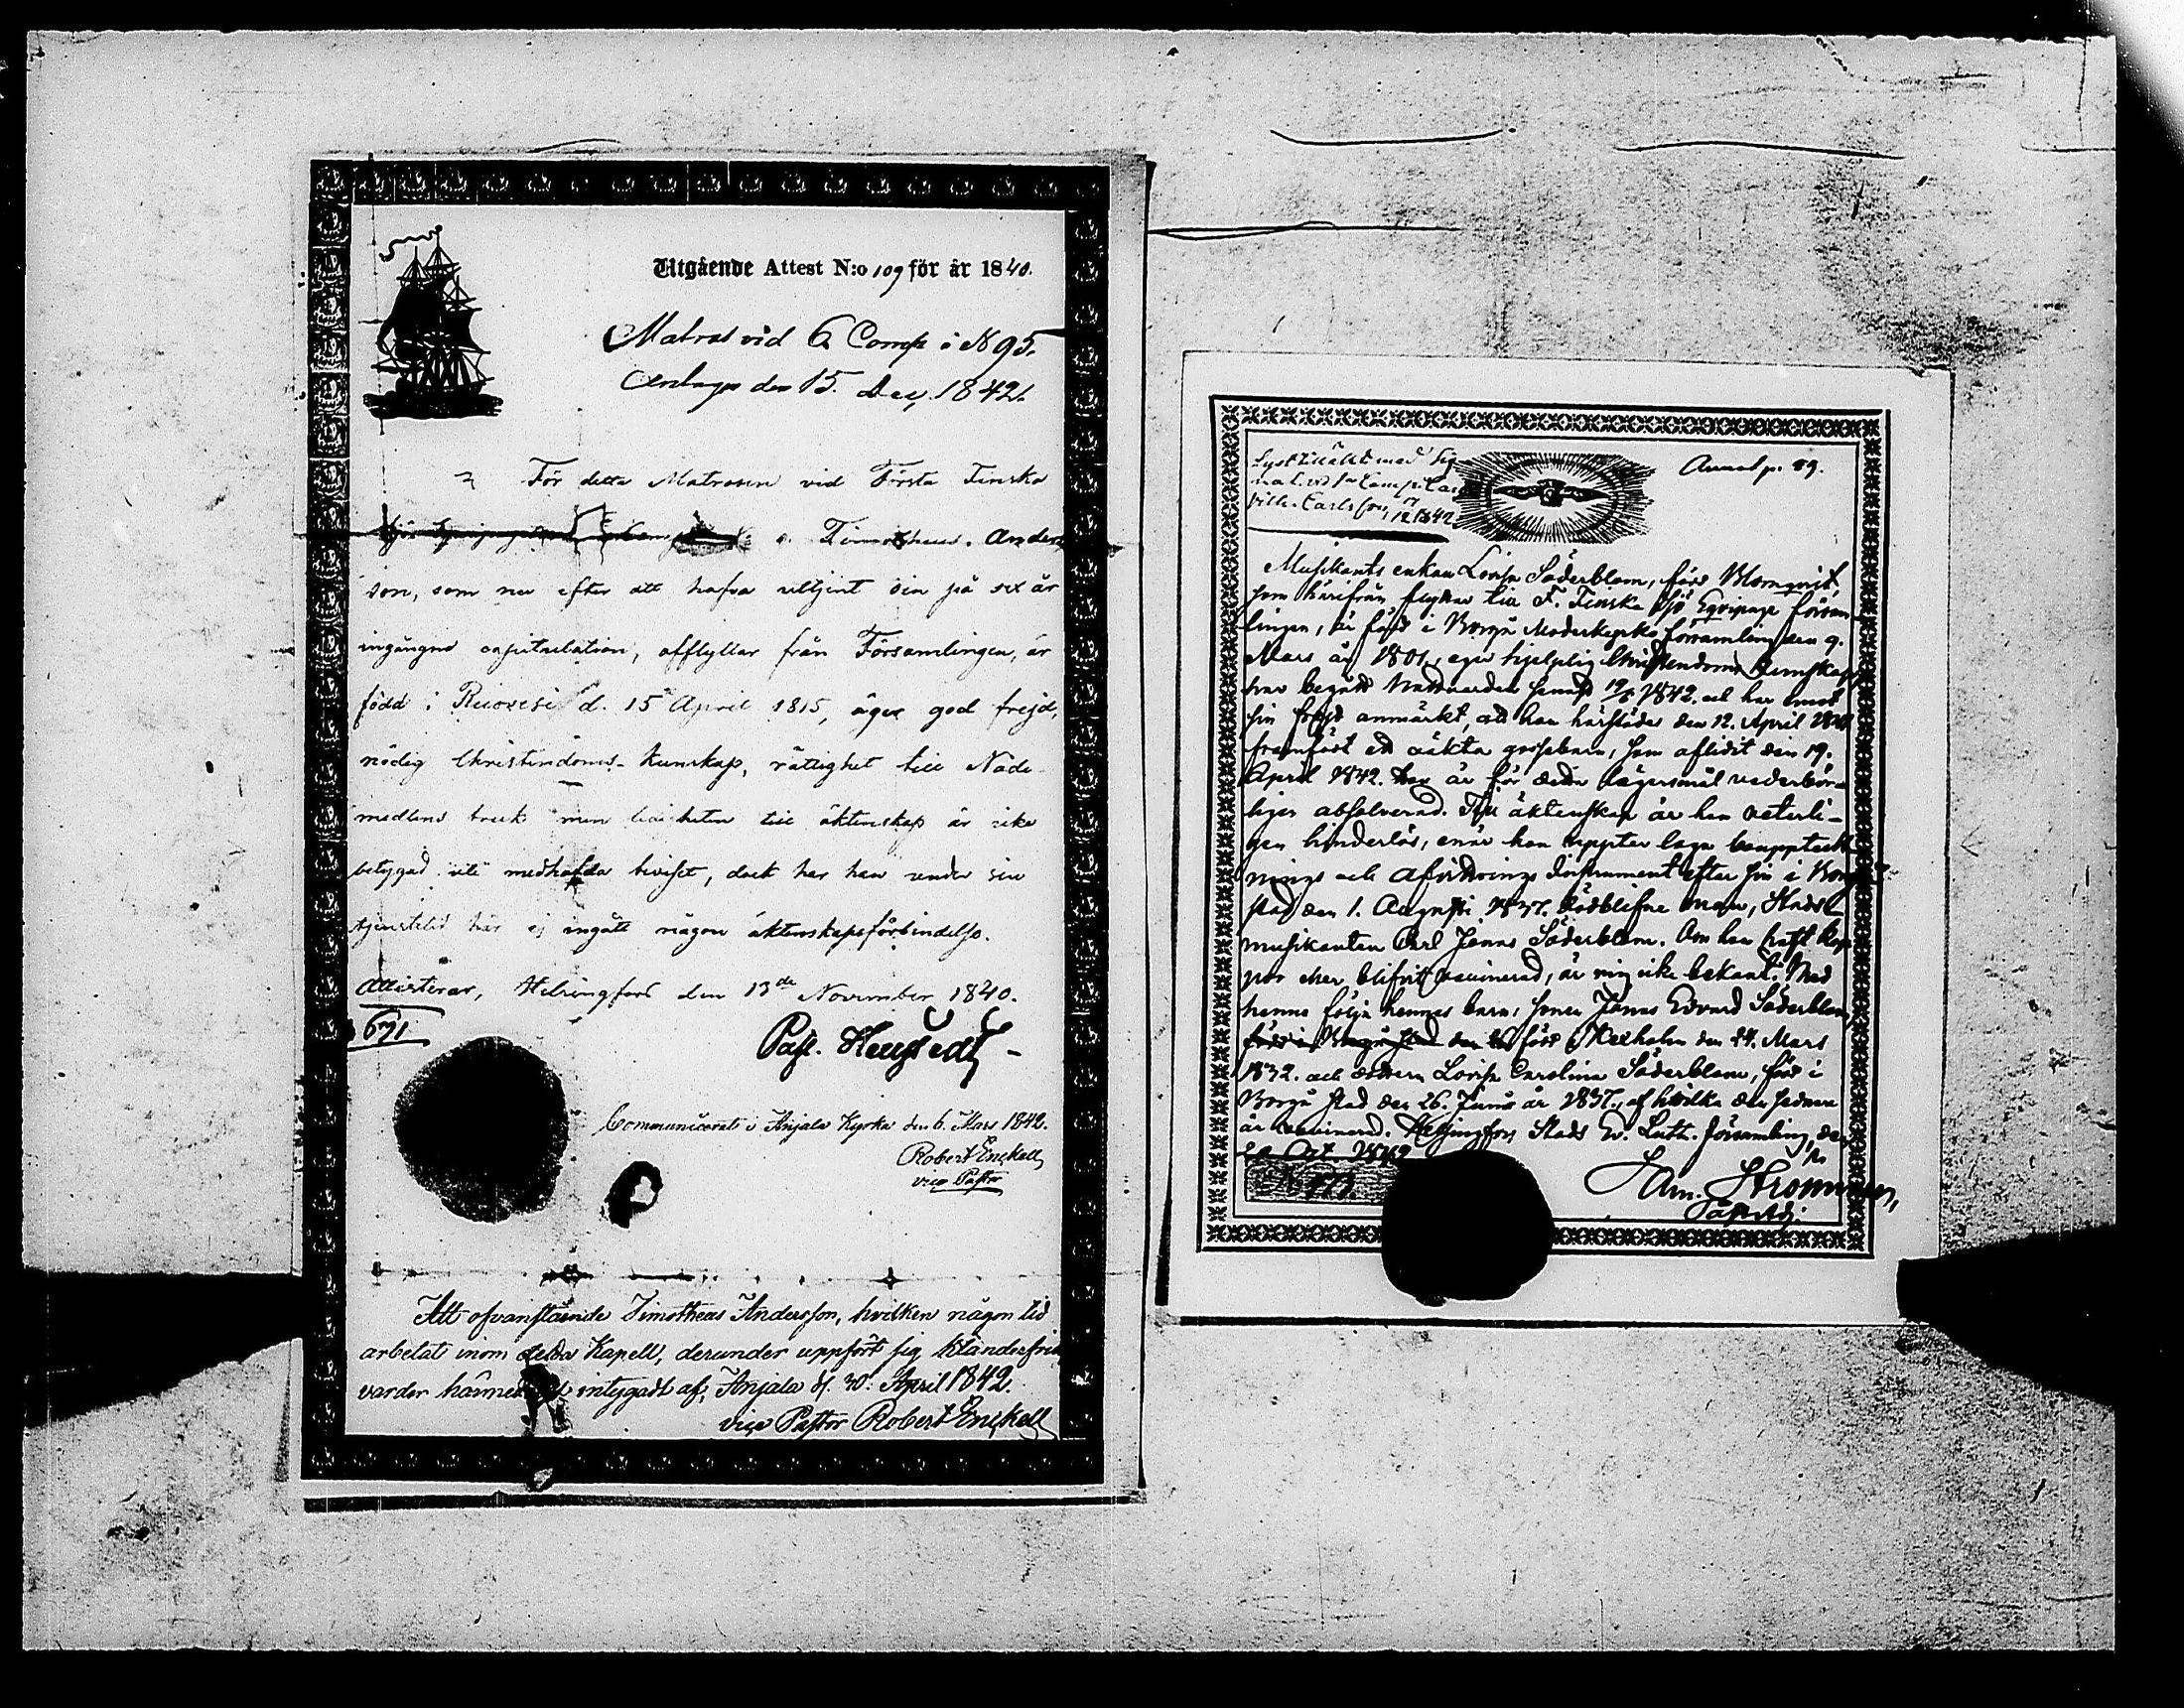 Utgående Attest N:o 109 för år 1840.
Matros vid 6 Comp: N 95.
Antagen den 15. Dec. 1842.
För detta Matrosen vid Första Finska
Timotheus. Anders
son, som nu efter att hafva uttjent sin på sex år
ingångna capitulation, afflyttar från Församlingen, är
född i Ruovesi d. 15 April 1815, äger god frejd,
nödig Christendoms-kunskap, rättighet till Nåde-
medlens bruk men till äktenskap är icke
betygad uti medhafda beviset, dock har han under sin
tjenstetid här ej ingått någon äktenskapsförbindelse.
Attesterar, Helsingfors den 13de November 1840.
671
Past.
Communicerat i Anjala Kyrka den 6. Mars 1842.
Robert Enckell
vice Pastor
Att ofvanstående Timotheus Andersson, hvilken någon tid
arbetat inom detta Kapell, derunder uppfört sig klanderfritt
varder härmed intygadt af, Anjala d. 30. April 1842.
vice Pastor Robert Enckell
Lyst till äkt. med Sig
Vilh. Carlsson 1842
Annot p. 89.
Musikants enkan Lovisa Söderblom, född Blomqvist,
som härifrån flyttar till F. Finska Sjö Eqvipage försam
lingen, är född i Borgå Moderkyrko församling den 9.
Mars år 1801, eger hjelplig Christendoms kunskap,
har begått Nattvarden senast 1842. och har emot
sin frejd anmärkt, att hon härstädes den 12. April
framfödt ett oäkta gossebarn, som aflidit den 19.
April 1842. hon är för detta lägersmål vederbör-
ligen absolverad. Till äktenskap är hon veterli-
gen hinderlös, enär hon uppter laga bouppteck
nings och Afvittrings Instrument efter sin i Borgå
stad den 1. Augusti 1837. dödblifne man, Stads
musikanten Carl Jonas Söderblom. Om hon haft kop
por eller blifvit vaccinerad, är mig icke bekant. Med
henne följa hennes barn, sonen Jonas Edvard Söderblom
född i Kexholm den 24. Mars
1832. och dottern Lovisa Carolina Söderblom, född i
Borgå stad den 26. Junii år 1837., af hvilka den sednare
är vaccinerad. Helsingfors Stads Ev. Luth. församling, den
Oct. 1842
Past. Adj.